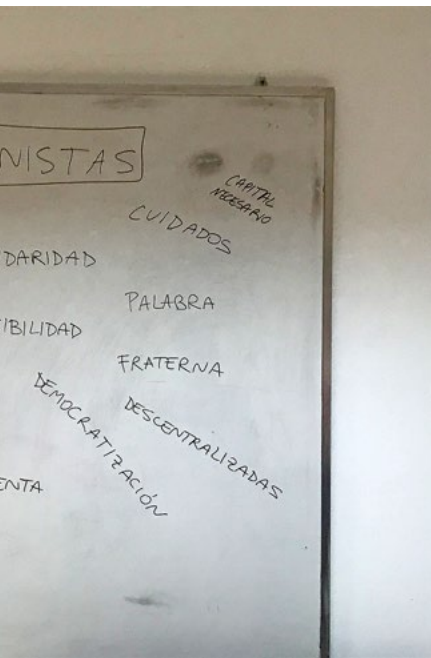 NISTAS
CAPITAL
NECESARIO
CUIDADOS
DARIDAD
PALABRA
IBILIDAD
FRATERNA
DEMOCRATIZACIÓN
DESCENTRALIZADAS
ENTA